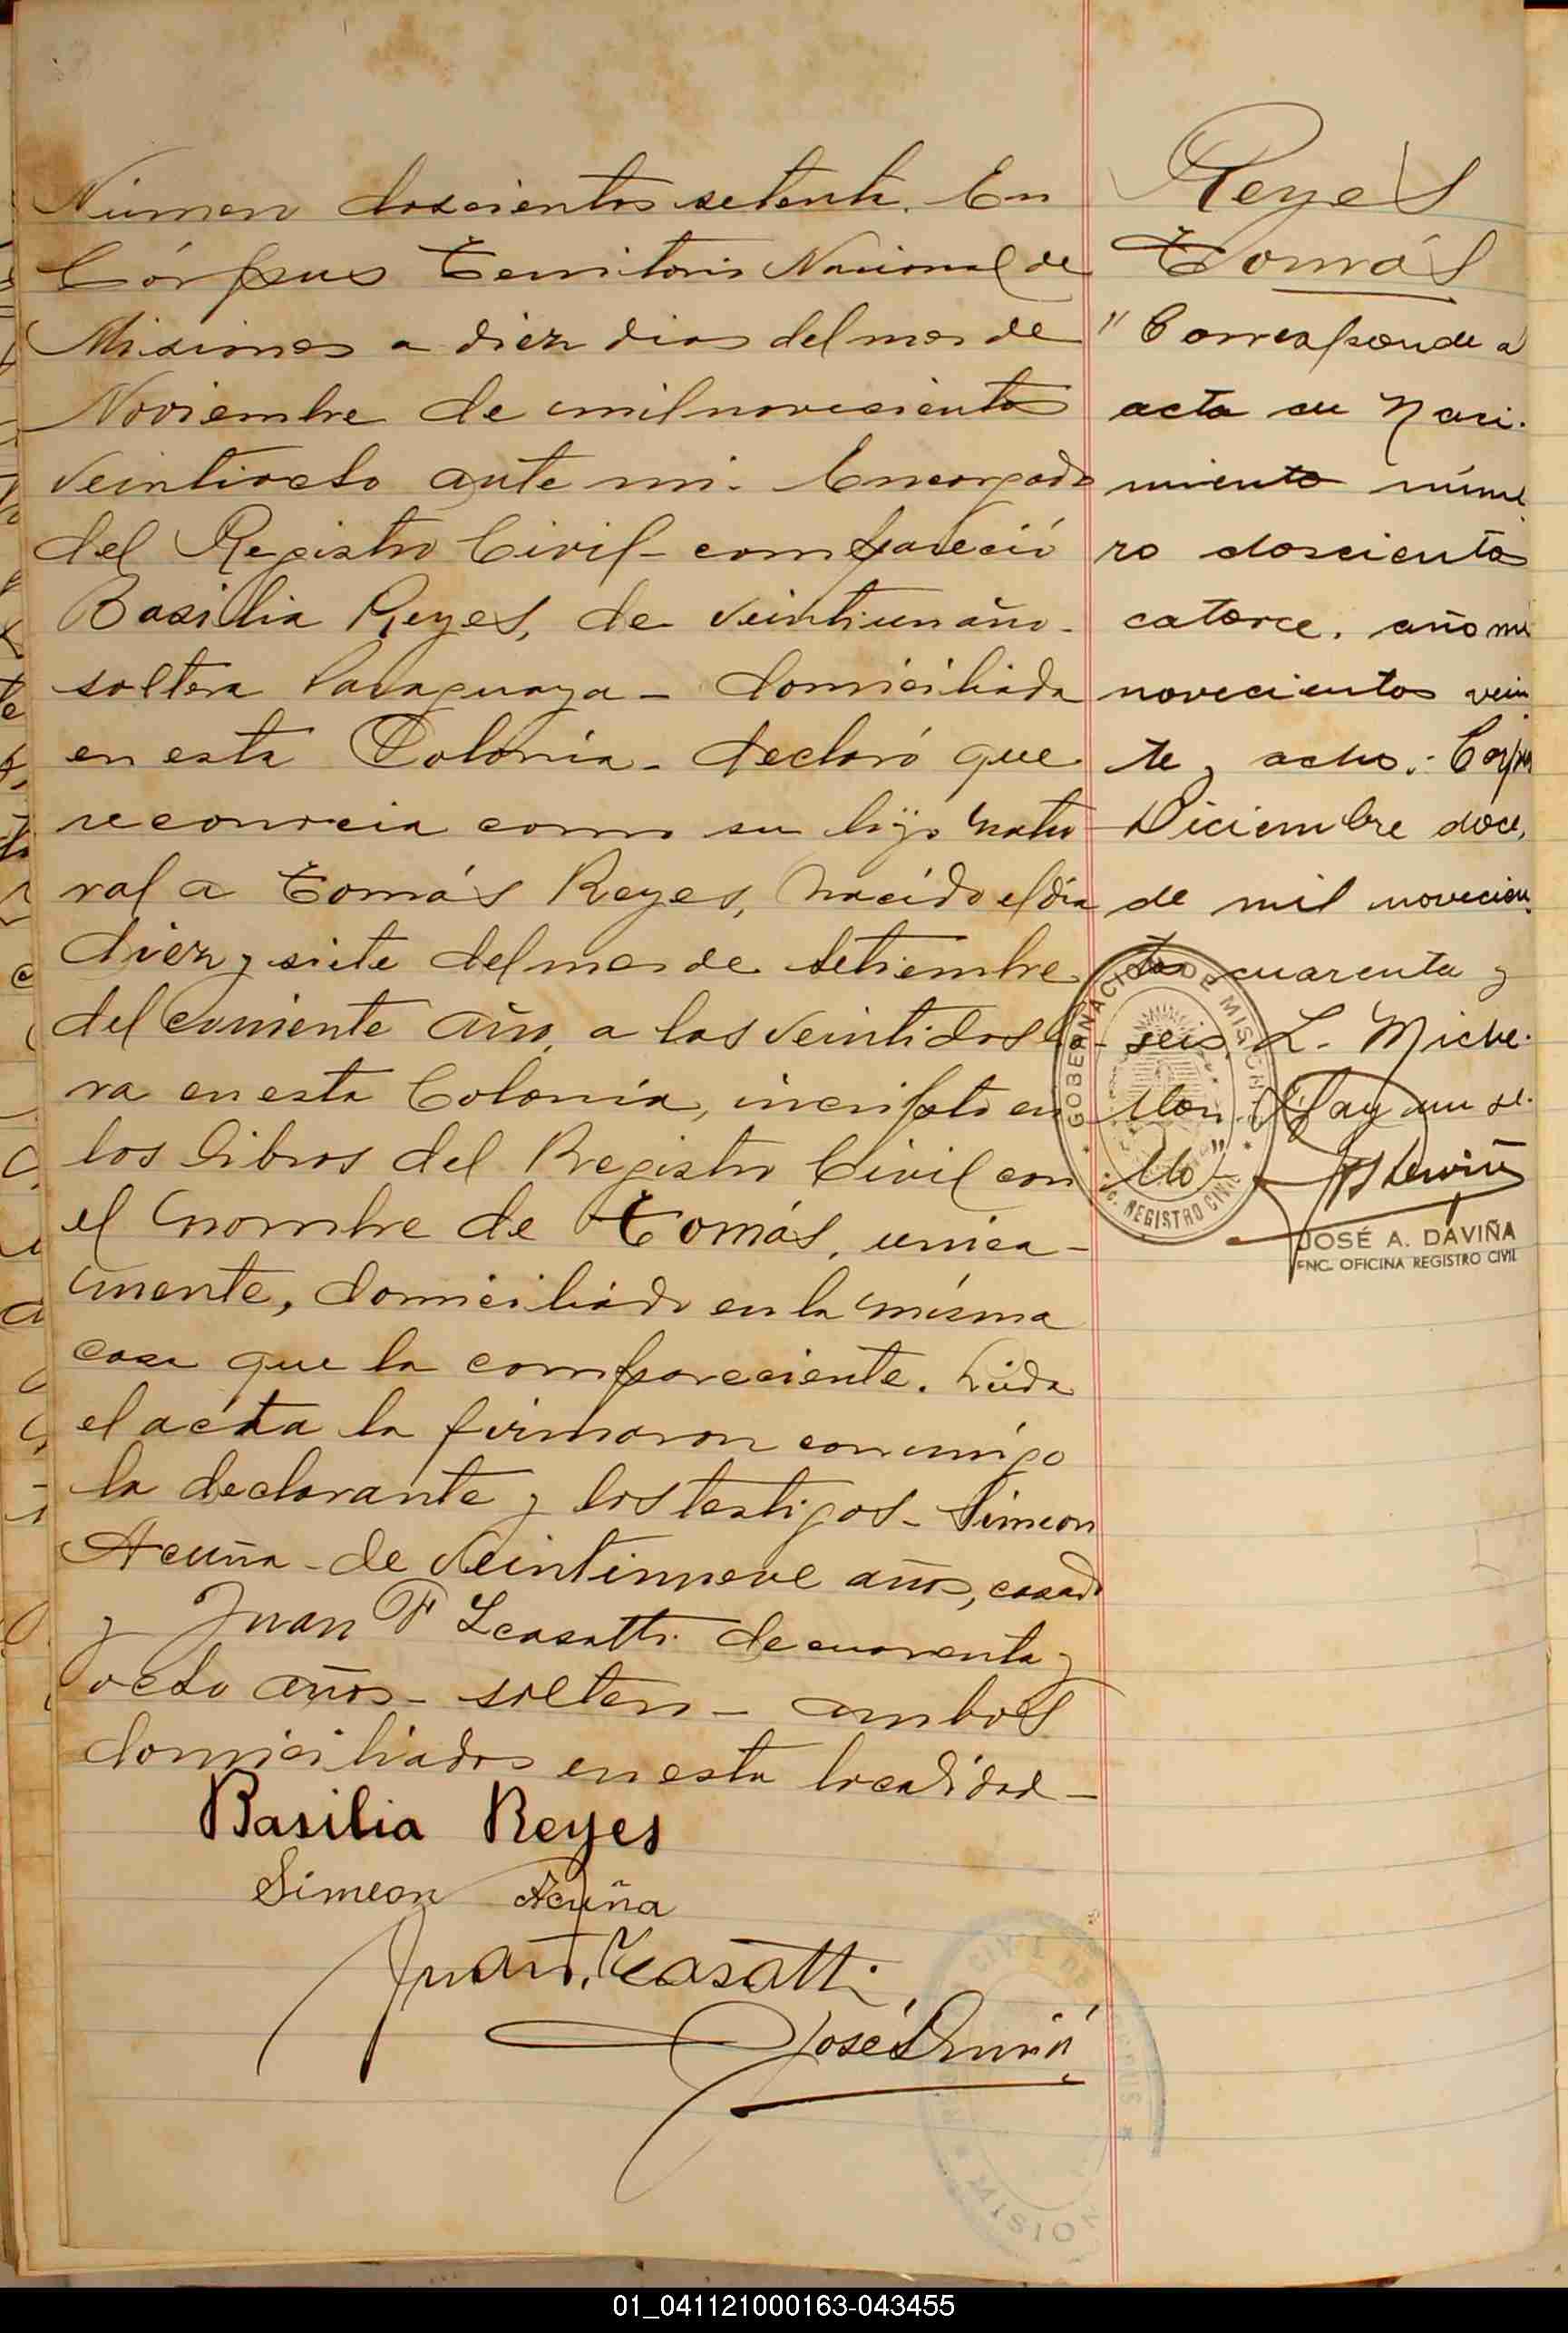 Número doscientos setenta. En
Córpus Territorio Nacional de
Misiones a diez dias del mes de
Noviembre de mil novecientos
veintiocho ante mi. Encargado
del Registro Civil - compareció
Basilia Reyes, de veintiun año -
soltera Paraguaya - domiciliada
en esta Colonia - declaró que
reconocia como su hijo natu
ral a Tomás Reyes, nacido el dia
diez y siete del mes de Setiembre
del corriente año, a las veintidos ho-
ra en esta Colonia, inscripto en
los libros del Registro Civil con
el nombre de Tomás, unica-
mente, domiciliado en la misma
casa que la compareciente. Leida
el acta la firmaron conmigo
la declarante y los testigos - Simeon
Acuña - de veintinueve años, casado
y Juan F Lcasatti de cuarenta y
ocho años - soltero - ambos
domiciliados en esta localidad -
Basilia Reyes
Simeon Acuña
Juan F. Lcasatti
José Daviña
Reyes
Tomás
" Corresponde a
acta de Naci-
miento núme
ro doscientos
catorce, año mil
novecientos vein
te y ocho.- Corpus
Diciembre doce,
de mil novecien-
tos cuarenta y
seis. L. Miche-
llon. Hay un se-
llo"
GOBERNACION DE MISIONES
OFIC. REGISTRO CIVIL
JOSÉ A. DAVIÑA
ENC. OFICINA REGISTRO CIVIL
CIVIL DE
MISION
01_041121000163-043455